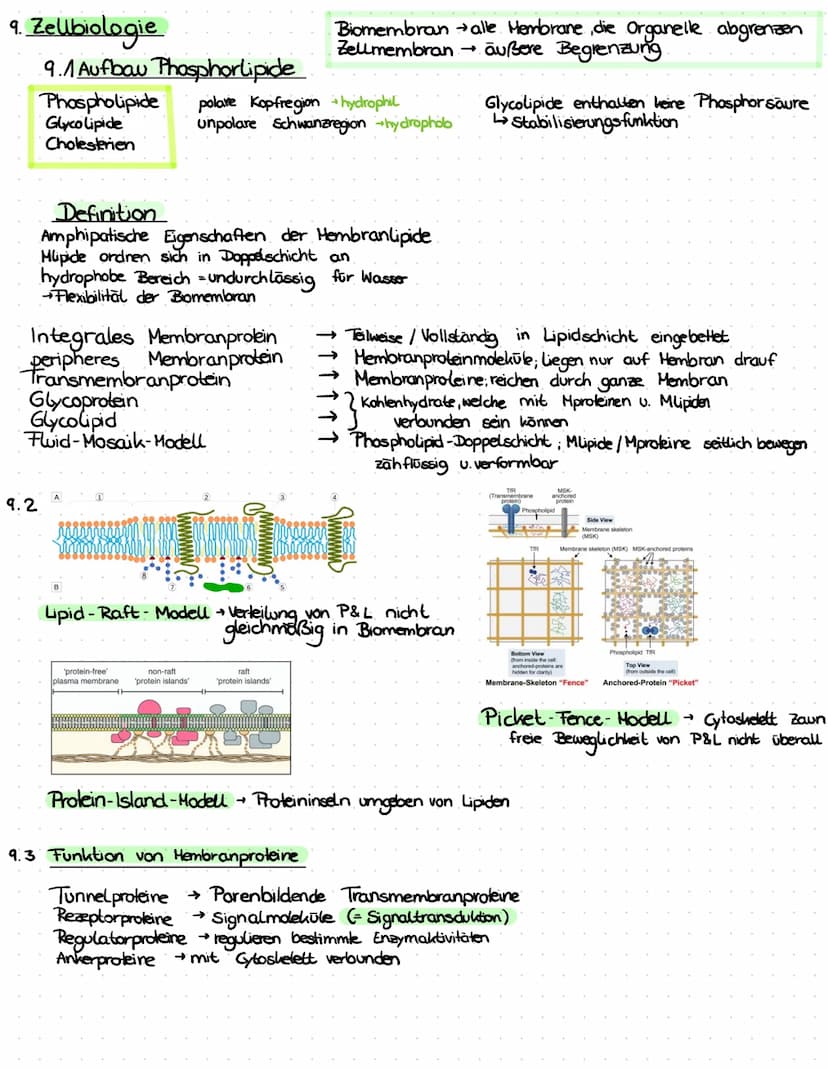 9. Zellbiologie
Biomembran → alle Membrane, die Organelle abgrenzen
Zellmembran → äußere Begrenzung
9.1 Aufbau Phosphorlipide
Phospholipide
Glycolipide
Cholesterien
polare Kopfregion → hydrophil
unpolare Schwanzregion → hydrophob
Glycolipide enthalten keine Phosphorsäure
↳ Stabilisierungsfunktion
Definition
Amphipatische Eigenschaften der Membranlipide
Mlipide ordnen sich in Doppelschicht an
hydrophobe Bereich = undurchlässig für Wasser
→ Flexibilität der Biomembran
Integrales Membranprotein → Teilweise / Vollständig in Lipidschicht eingebettet
peripheres Membranprotein → Membranproteinmoleküle; liegen nur auf Membran drauf
Transmembranprotein → Membranproteine; reichen durch ganze Membran
Glycoprotein → } Kohlenhydrate, welche mit Mproteinen u. Mlipiden
Glycolipid → verbunden sein können
Fluid-Mosaik-Modell → Phospholipid-Doppelschicht; Mlipide / Mproteine seitlich bewegen
zähflüssig u. verformbar
9.2
A 1 2 3 4
B 8 7 6 5
Lipid-Raft-Modell → Verteilung von P&L nicht
gleichmäßig in Biomembran
TfR
(Transmembrane
protein)
MSK-
anchored
protein
Phospholipid
Side View
Membrane skeleton
(MSK)
TfR
Membrane skeleton (MSK)
MSK-anchored proteins
Phospholipid TfR
Bottom View
(from inside the cell:
anchored-proteins are
hidden for clarity)
Top View
(from outside the cell)
Membrane-Skeleton "Fence"
Anchored-Protein "Picket"
Picket-Fence-Modell → Cytoskelett Zaun
freie Beweglichkeit von P&L nicht überall
'protein-free'
plasma membrane
non-raft
'protein islands'
raft
'protein islands'
Protein-Island-Modell → Proteininseln umgeben von Lipiden
9.3 Funktion von Membranproteine
Tunnelproteine → Porenbildende Transmembranproteine
Rezeptorproteine → Signalmoleküle (= Signaltransduktion)
Regulatorproteine → regulieren bestimmte Enzymaktivitäten
Ankerproteine → mit Cytoskelett verbunden